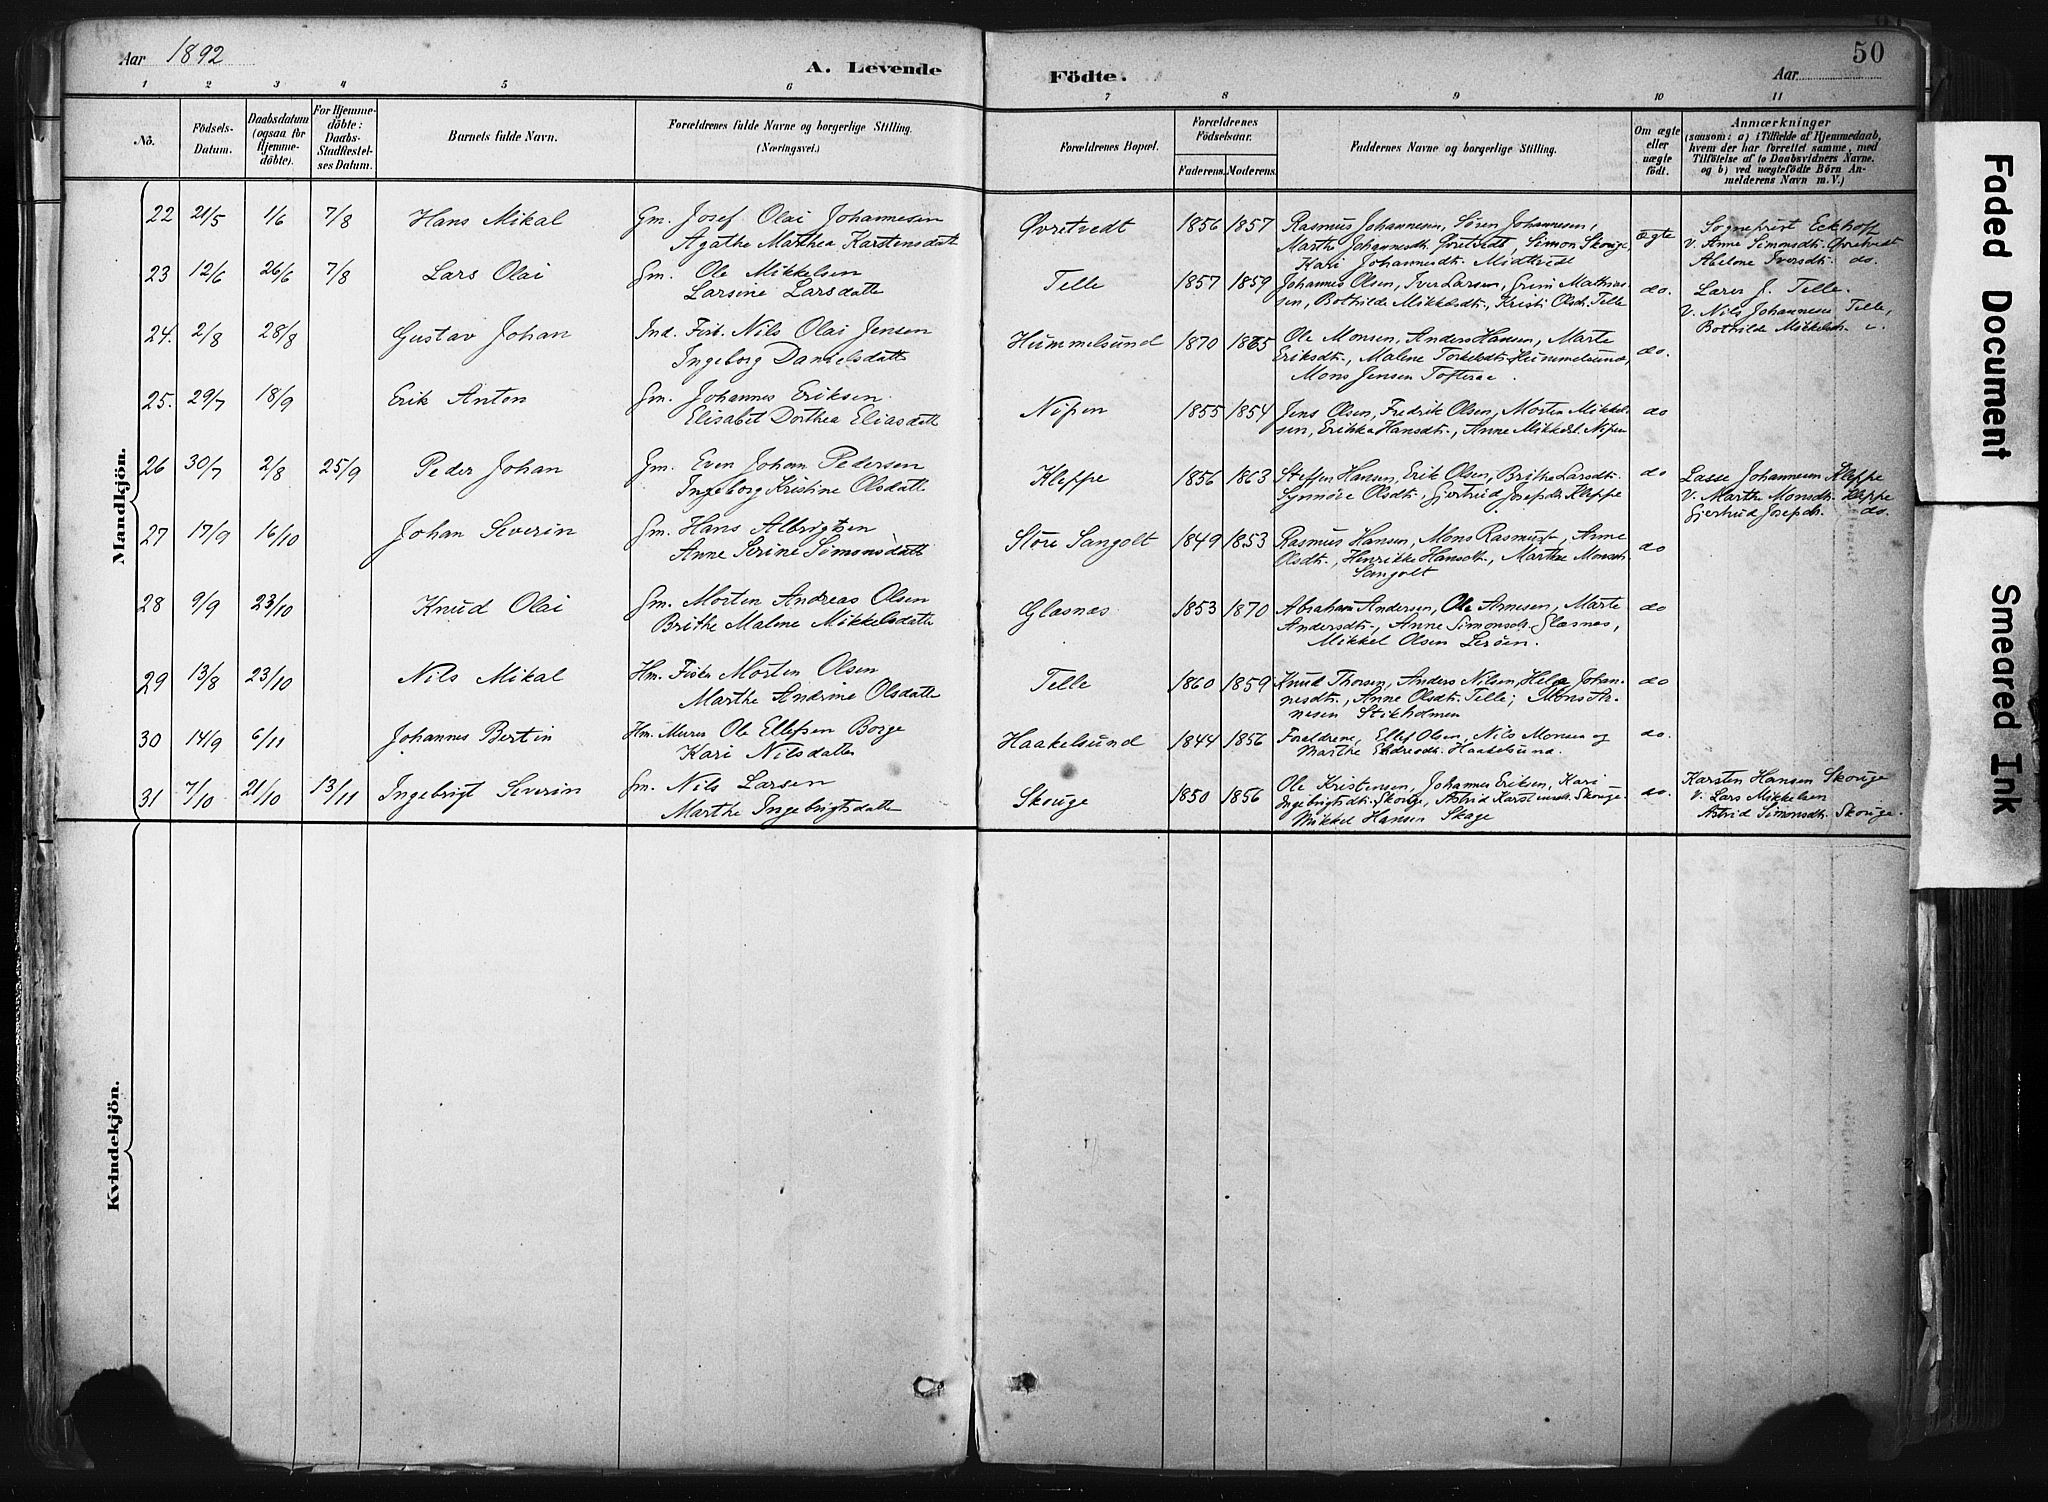 Aar 1892
A. Levende
Födte.
Aar
50
1 2 3 4 5 6 7 8 9 10 11
No.
Födsels-Datum.
Daabsdatum (ogsaa for Hjemmedöbte).
For Hjemmedöbte: Daabs-Stadfæstelses Datum.
Barnets fulde Navn.
Forældrenes fulde Navne og borgerlige Stilling.
(Næringsvei.)
Forældrenes Bopæl.
Forældrenes Födselsaar.
Faderens. Moderens.
Faddernes Navne og borgerlige Stilling.
Om ægte eller uægte födt.
Anmærkninger
(saasom: a) i Tilfælde af Hjemmedaab,
hvem der har forrettet samme, med
Tilföielse af to Daabsvidners Navne.
og b) ved uægtefödte Börn An-
melderens Navn m. V.)
Mandkjön.
22 21/5 1/6 7/8 Hans Mikal Gm. Josef Olai Johannesen Øvretvedt 1856 1857 Rasmus Johannesen, Sören Johannesen, ægte Sogneprest Eckhoff
Agathe Marthea Karstensdatt Marthe Johannesdt. Øvretvedt, Simon Skouge, V. Anne Simonsdt. Øvretvedt
Kari Johannesdt. Midtvedt Abelone Iversdt. do.
23 12/6 26/6 7/8 Lars Olai Gm. Ole Mikkelsen Telle 1857 1859 Johannes Olsen, Iver Larsen, Guni Mathias- do. Lars J. Telle.
Larsine Larsdatte sen, Bothilde Mikkelsdt., Kristi Olsdt. Telle V. Nils Johannesen Telle,
Bothilde Mikkelsdt.
24. 2/8 28/8 Gustav Johan Ind. Fisk. Nils Olai Jensen Hummelsund 1870 1865 Ole Monsen, Anders Hansen, Marte do.
Ingeborg Danielsdatte Eriksdt., Malene Torkelsdt. Hummelsund,
Mons Jensen Tofteroe.
25. 29/7 18/9 Erik Anton Gm. Johannes Eriksen Nipen 1855 1854 Jens Olsen, Fredrik Olsen, Morten Mikkel- do
Elisabet Dorthea Eliasdatt sen, Erikka Hansdt., Anne Mikkelsd. Nipen
26 30/7 2/8 25/9 Peder Johan Gm. Even Johan Pedersen Kleppe 1856 1863 Steffen Hansen, Erik Olsen, Brithe Larsdt. do Lasse Johannesen Kleppe
Ingeborg Kristine Olsdatte Synnöve Olsdt., Gjertrud Josepdt. Kleppe V. Marthe Monsdt. Kleppe
Gjertrud Josepdt. do.
27 17/9 16/10 Johan Severin Gm. Hans Albrigtsen Store Sangolt 1849 1853 Rasmus Hansen, Mons Rasmus., Anne do
Anne Serine Simonsdatte Olsdt., Henrikke Hansdt., Marthe Monsdt.
Sangolt
28 9/9 23/10 Knud Olai Gm. Morten Andreas Olsen Glæsnæs 1853 1870 Abraham Andersen, Ole Arnesen, Marte do
Brithe Malene Mikkelsdatte Andersdt., Anne Simonsdt. Glæsnæs,
Mikkel Olsen Leröen.
29 13/8 23/10 Nils Mikal Hm. Fisker Morten Olsen Telle 1860 1859 Knud Thorsen, Anders Nilsen, Helga Johan- do
Marthe Andrine Olsdatte nesdt., Anne Olsdt. Telle; Mons Ar-
nesen Stikholmen
30 14/9 6/11 Johannes Bertin Hm. Murer Ole Ellefsen Borge Haakelsund 1844 1856 Forældrene, Ellef Olsen, Nils Monsen og do.
Kari Nilsdatter Marthe Endresdt. Haakelsund.
31 7/10 21/10 13/11 Ingebrigt Severin Gm. Nils Larsen Skouge 1850 1856 Ole Kristensen, Johannes Eriksen, Kari do. Karsten Hansen Skouge
Marthe Ingebrigtsdatte Ingebrigtsdt. Skouge, Astrid Karstensdt. Skouge. V. Lars Mikkelsen
Mikkel Hansen Skage Astrid Simonsdt. Skouge.
Kvindekjön.
Faded Document
Smeared Ink